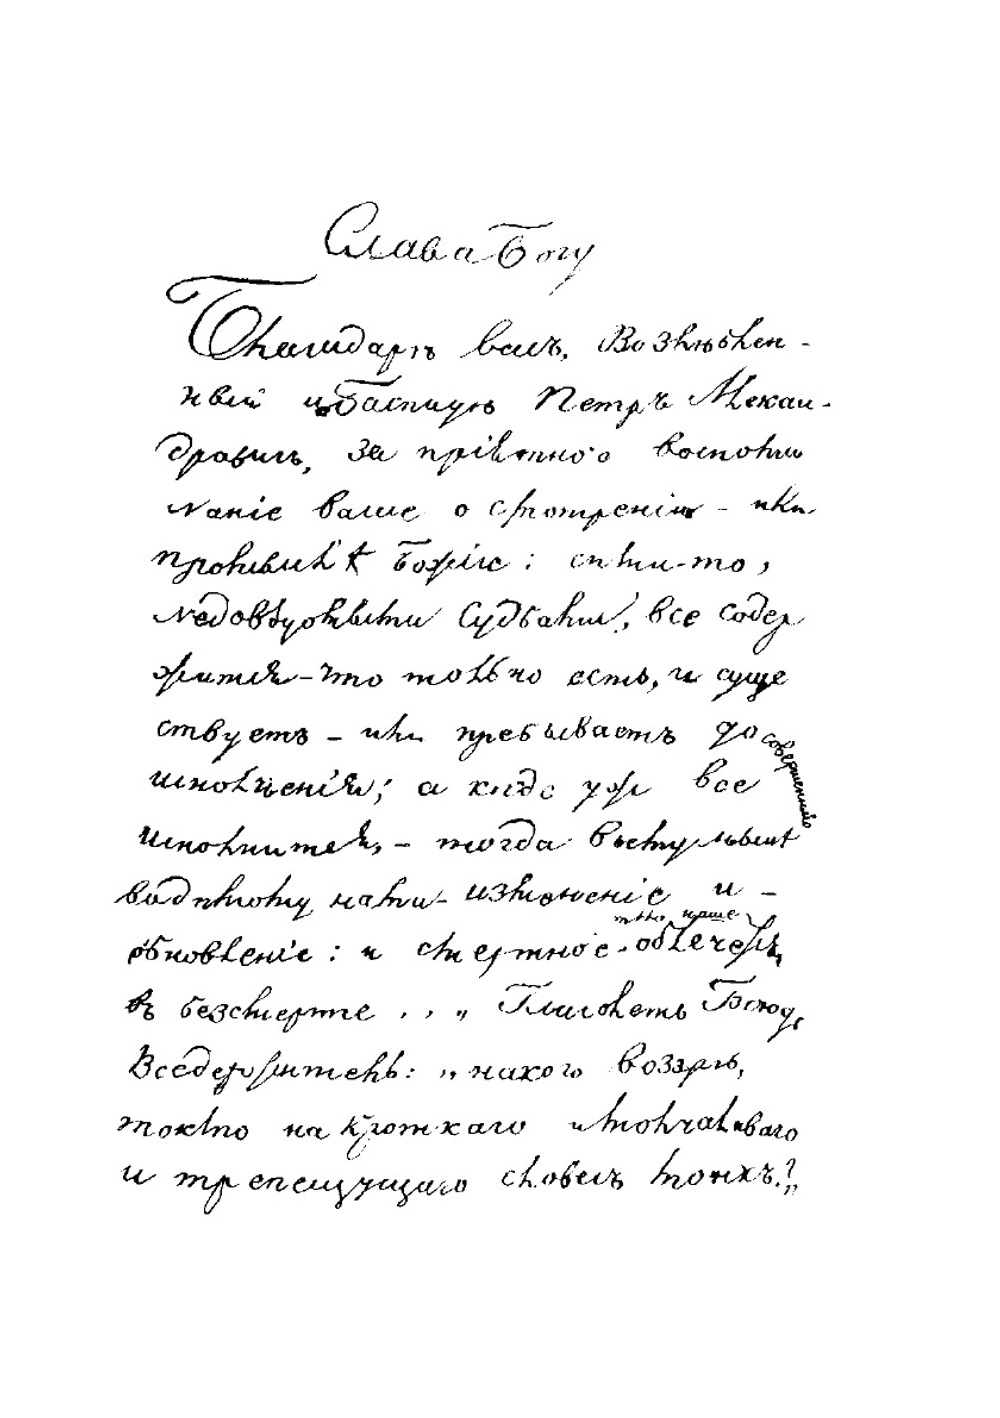 Слава Богу
Благодарю васъ, Возлюблен-
ный Петръ Алексан-
дравичь, за пріятное воспоми
наніе ваше о смотреніи - или
промыслѣ Божіе: сими-то,
недовѣдомыми Судбами, все содер
жится - что только есть, и суще
ствуетъ - или пребываетъ до совершеннаго
исполненія; а когда уже все
исполнится, - тогда
изменение и -
обновленіе: и смертное - тѣло наше облечется,
въ безсмертие . . „ Глаголетъ Господь,
Вседержитель: „ на кого воззрю,
токмо на кроткаго и молчаливаго
и трепещущаго словесъ моихъ.?„